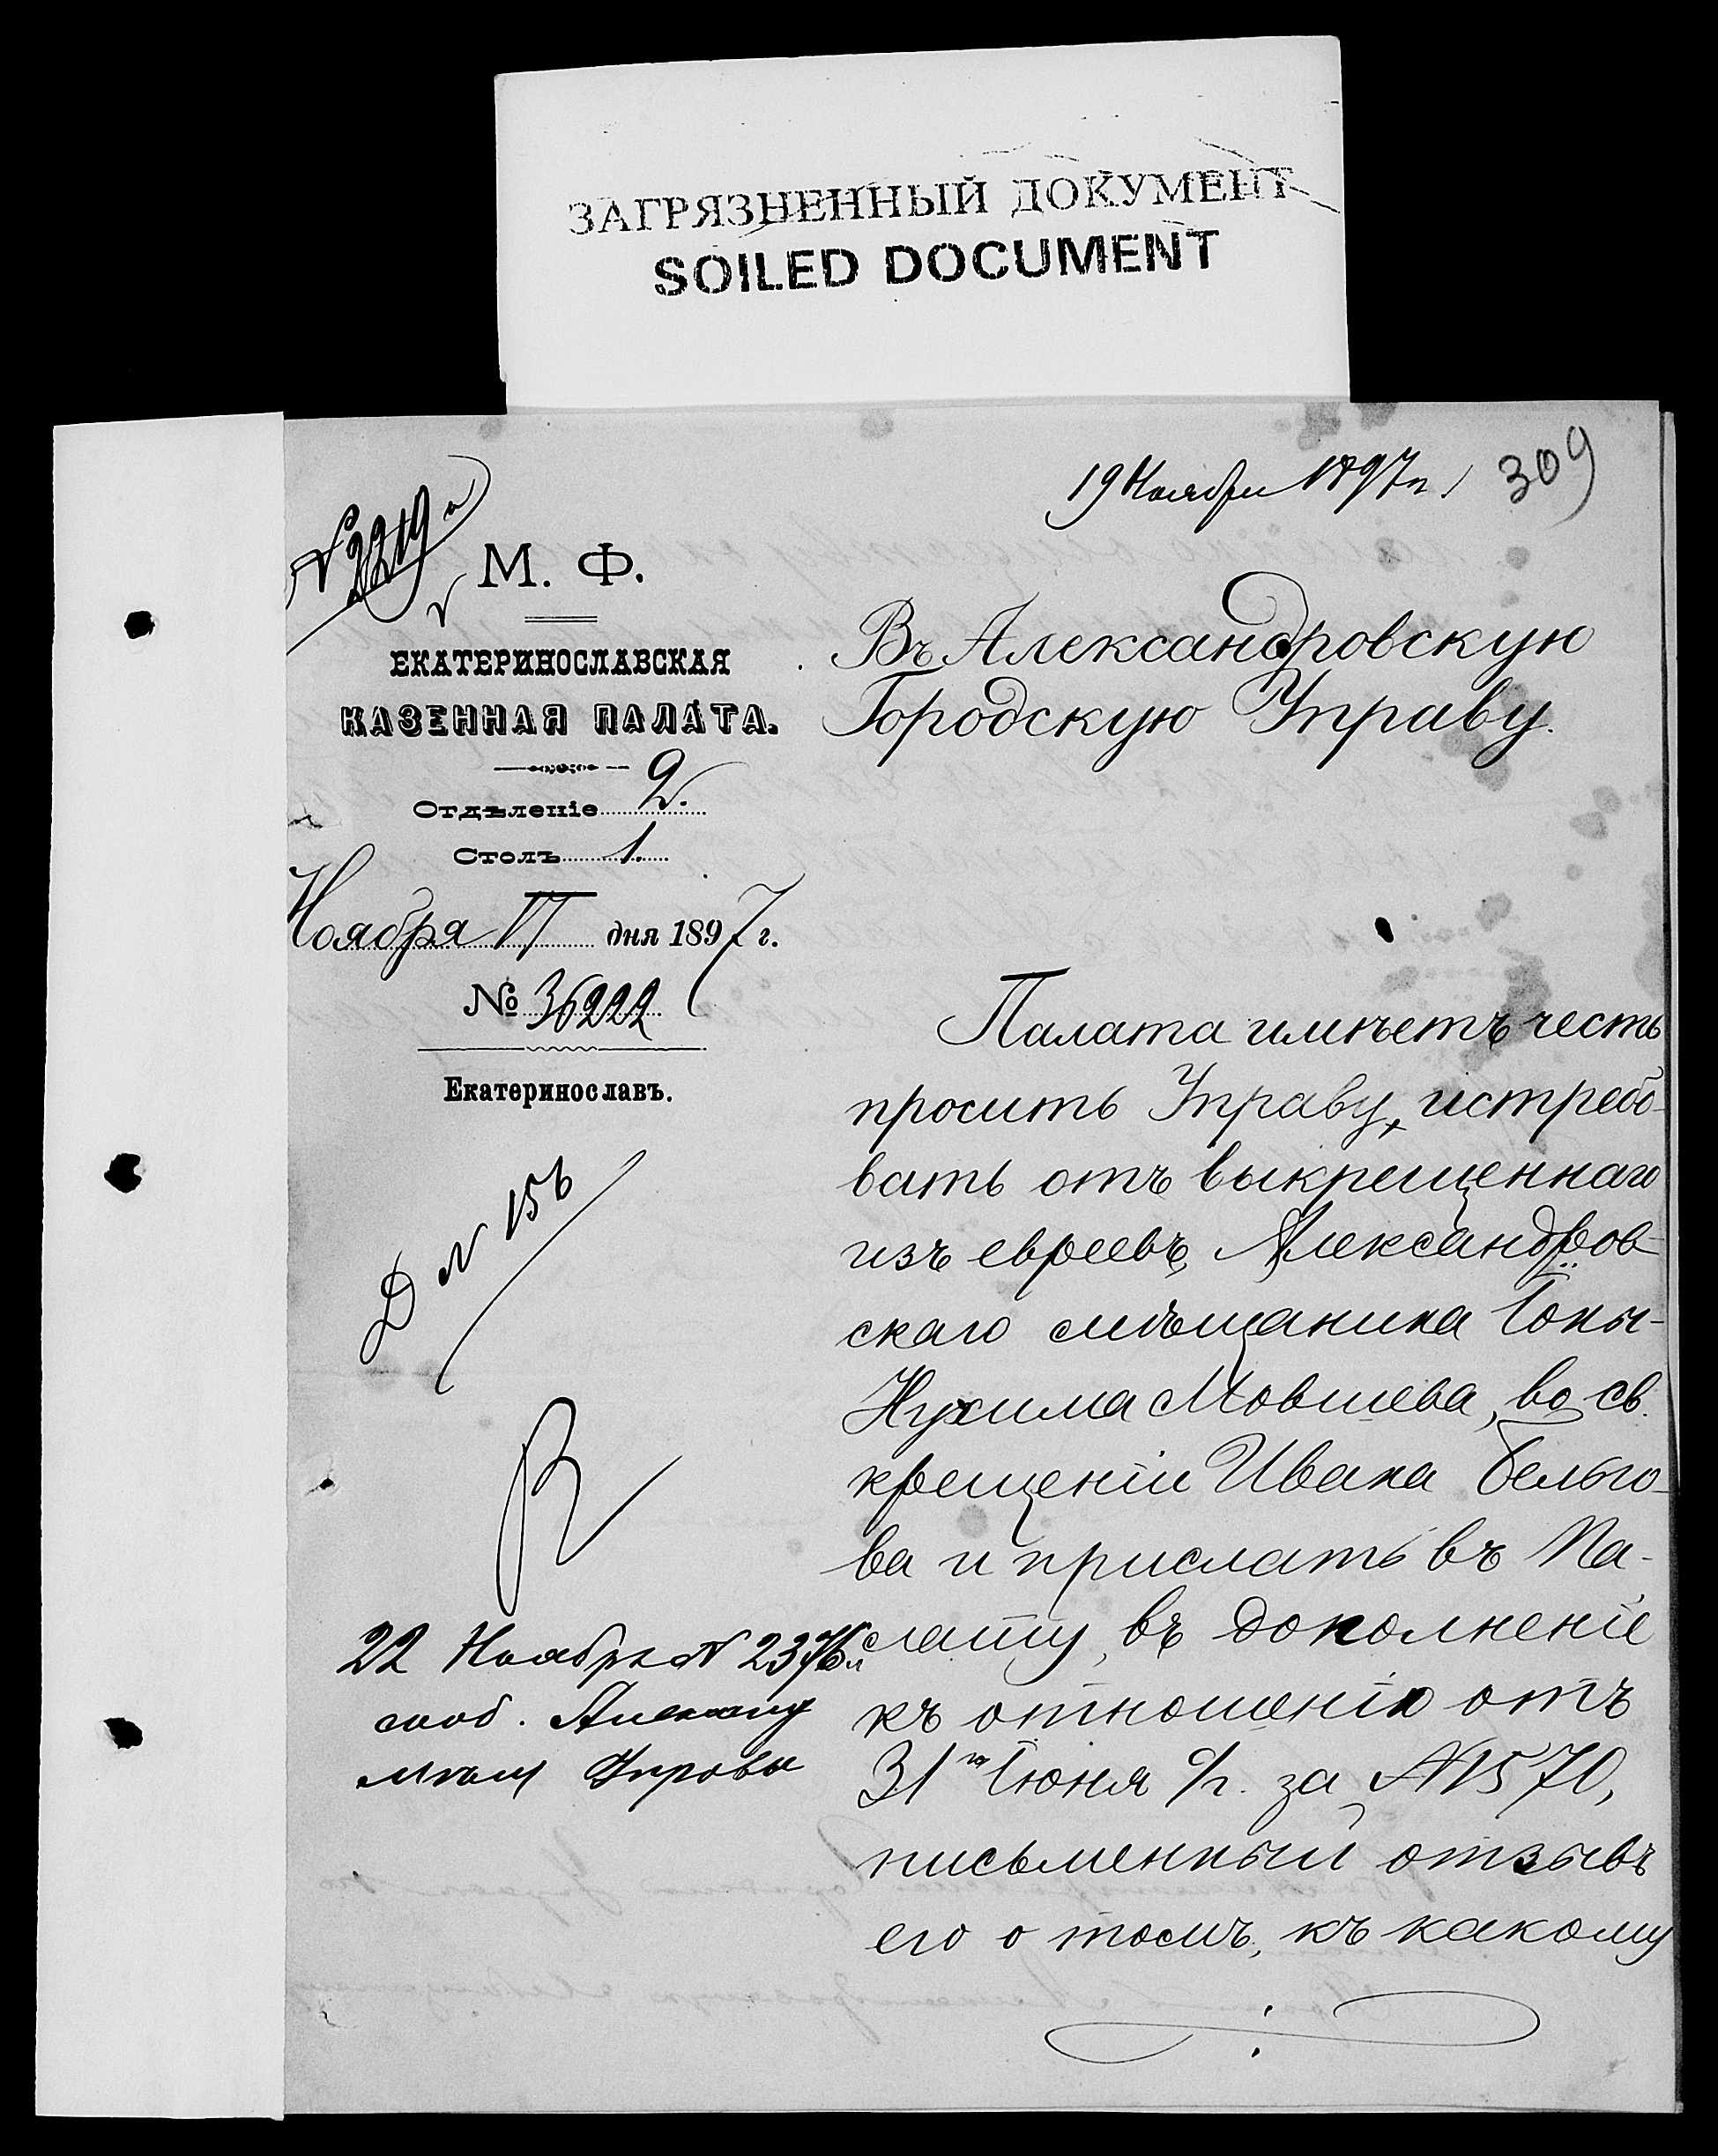 ЗАГРЯЗНЕННЫЙ ДОКУМЕНТ
SOILED DOCUMENT
19 Ноября 1897 г.
309
№ 2219
М. Ф.
ЕКАТЕРИНОСЛАВСКАЯ
КАЗЕННАЯ ПАЛАТА.
Отдѣленіе 2.
Столъ 1.
Ноября 17 дня 1897 г.
№ 36222
Екатеринославъ.
Д № 156
22 Ноября № 2376
сооб.
Управы
Въ Александровскую
Городскую Управу.
Палата имѣетъ честь
просить Управу, истребо-
вать отъ выкрещеннаго
изъ евреевъ, Александров-
скаго мѣщанина
Нухима Мовшева, во св.
крещеніи Ивана Бельго-
ва и прислать въ Па-
лату, въ дополненіе
къ отношенію отъ
31го Іюня с/г. за № 1570,
письменный отзывъ
его о томъ, къ какому